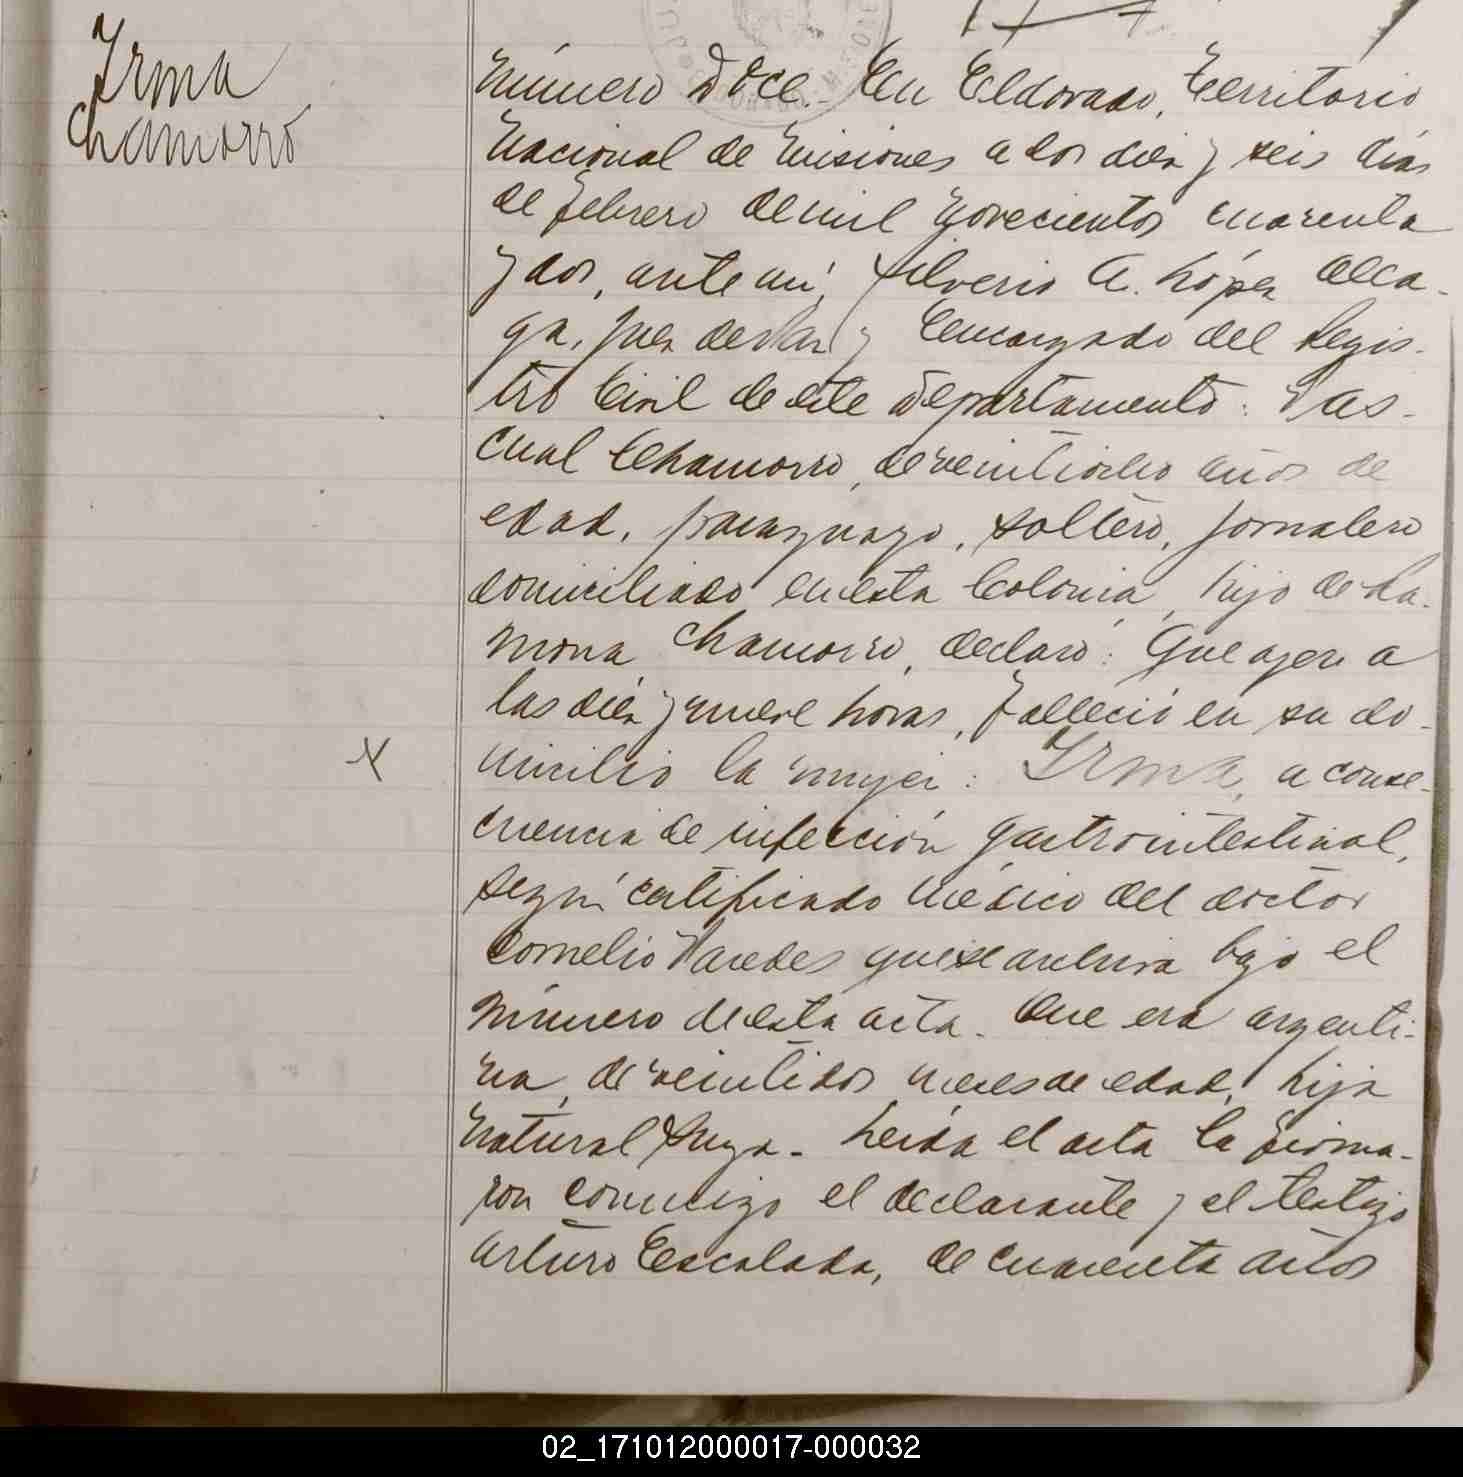 Irma
Chamorro
Número Doce.- En Eldorado, Territorio
Nacional de Misiones a los diez y seis días
de Febrero de mil novecientos cuarenta
y dos, ante mí, Silverio A. López Alca-
ga, Juez de Paz y Encargado del Regis-
tro Civil de este Departamento: Pas-
cual Chamorro, de veintiocho años de
edad, paraguayo, soltero, jornalero
domiciliado en esta Colonia, hijo de Ra-
mona Chamorro, declaró: Que ayer a
las diez y nueve horas, falleció en su do-
micilio la mujer: Irma, a conse-
cuencia de infección gastrointestinal,
según certificado médico del doctor
Cornelio Paredes que se archiva bajo el
número de esta acta. Que era argenti-
na, de veintidos meses de edad, hija
natural suya.- Leída el acta la firma-
ron conmigo el declarante y el testigo
Arturo Escalada, de cuarenta años
02_171012000017-000032